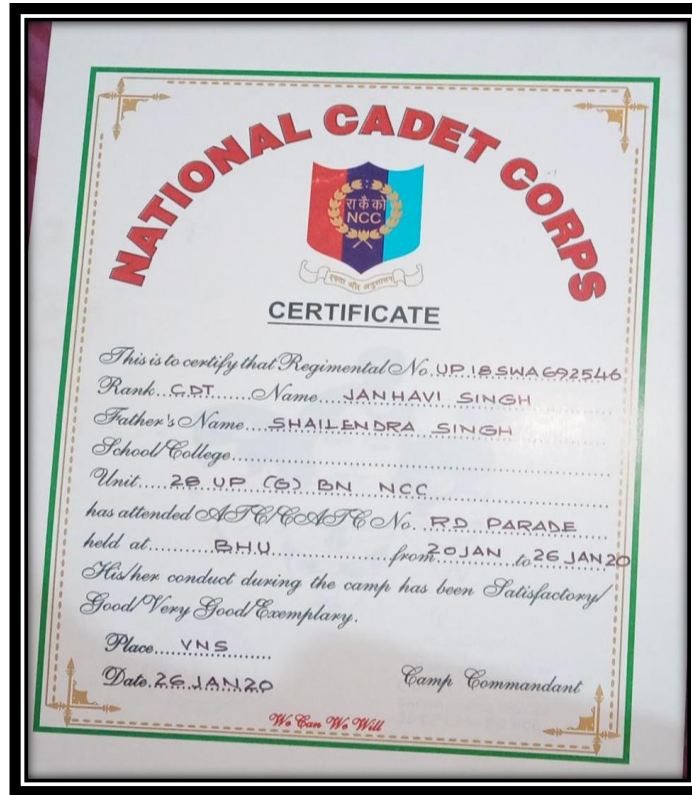 NATIONAL CADET CORPS
रा कै को
NCC
एकता और अनुशासन
CERTIFICATE
This is to certify that Regimental No. UP18SWA692546
Rank...CDT......Name...JANHAVI SINGH
Father's Name...SHAILENDRA SINGH
School/College......
Unit....28 UP (G) BN NCC
has attended ATC/CATC No. RD PARADE
held at.........BHU............from 20JAN to 26 JAN 20
His/her conduct during the camp has been Satisfactory/
Good/Very Good/Exemplary.
Place....VNS......
Date.26.JAN.20
Camp Commandant
We Can We Will